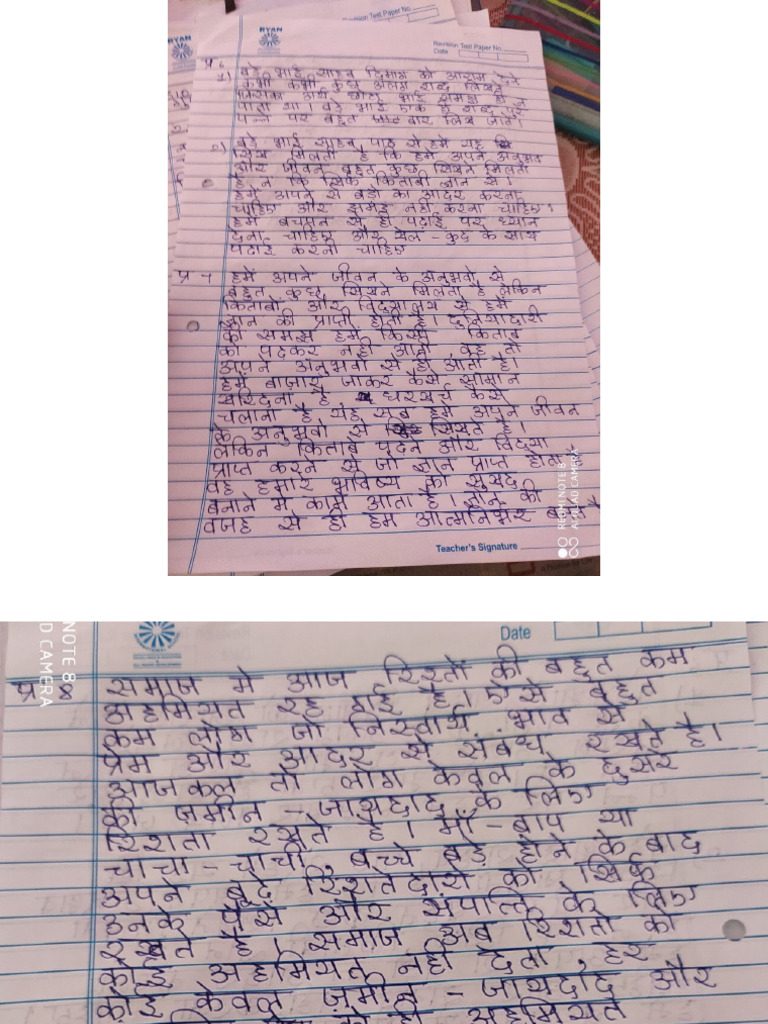 RYAN
Revision Test Paper No.
Date
प्र 6
1) बड़े भाई साहब दिमाग को आराम देने
कभी कभी कुछ अलग शब्द लिखते
जिसका अर्थ छोटा भाई समझ ही
पाता था। बड़े भाई एक ही शब्द
पन्ने पर बहुत बार लिख जाते।
2) बड़े भाई साहब पाठ से हमे यह
सिख मिलती है कि हमे अपने अनुभव
और जीवन बहुत कुछ सिखने मिलता
है, न कि सिर्फ किताबी ज्ञान से।
हमे अपने से बड़ो का आदर करना
चाहिए और घमंड नही करना चाहिए।
हमे बचपन से ही पढ़ाई पर ध्यान
देना चाहिए और खेल - कुद के साथ
पढ़ाई करनी चाहिए
प्र 7 हमें अपने जीवन के अनुभवो से
बहुत कुछ सिखने मिलता है लेकिन
किताबों और विद्यालय से हमे
ज्ञान की प्राप्ती होती है। दुनियादारी
की समझ हमें किसी किताब
को पढ़कर नही आती वह तो
अपने अनुभवो से ही आती है।
हमें बाज़ार जाकर कैसे सामान
खरिदना है घरखर्च कैसे
चलाना है यह सब हमे अपने जीवन
के अनुभवो से सिखते है।
लेकिन किताबे पढ़ने और विद्या
प्राप्त करने से जो ज्ञान प्राप्त होता
वह हमारे भविष्य को सुखद
बनाने मे काम आता है। ज्ञान की
वजह से ही हम आत्मनिर्भर
Teacher's Signature
REDMI NOTE 8
AI QUAD CAMERA
Date
NOTE 8
D CAMERA
प्र 8 समाज मे आज रिश्तो की बहुत कम
अहमियत रह गई है। ऐसे बहुत
कम लोग जो निस्वार्थ भाव से
प्रेम और आदर से संबंध रखते है।
आजकल तो लोग केवल के दुसरे
की ज़मीन - जायदाद के लिए
रिशता रखते है। माँ - बाप या
चाचा - चाची, बच्चे बड़े होने के बाद
अपने बुढ़े रिशतेदारो को सिर्फ
उनके पैसे और संपत्ति के लिए
रखते है। समाज अब रिशतो को
कोई अहमियत नही देता, हर
कोई केवल ज़मीन - जायदाद और
को ही अहमियत